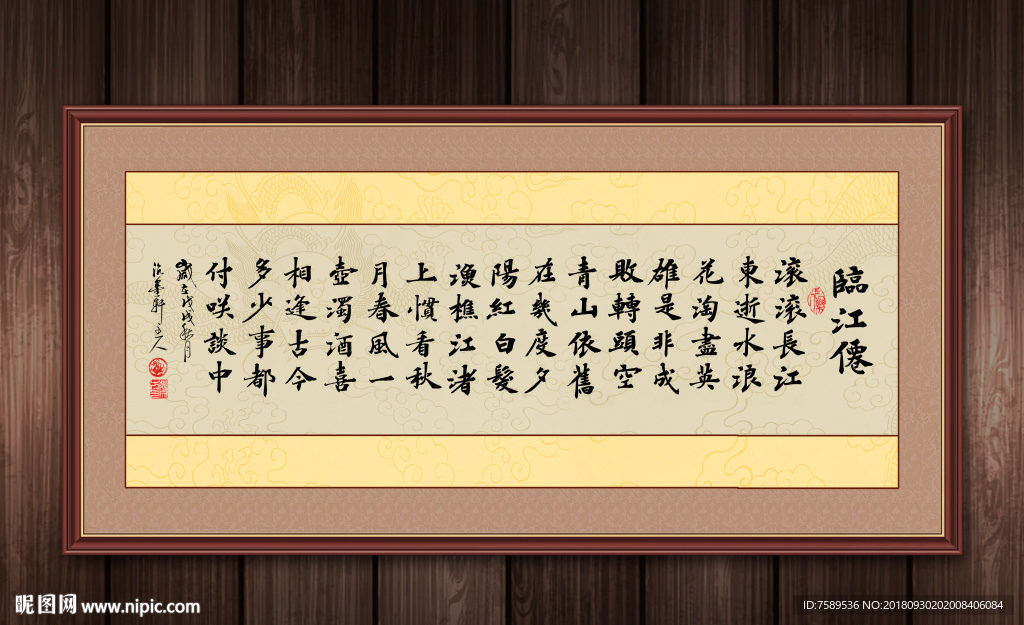 臨江僊
滚滚長江
東逝水浪
花淘盡英
雄是非成
敗轉頭空
青山依舊
在幾度夕
陽紅白髮
漁樵江渚
上慣看秋
月春風一
壺濁酒喜
相逢古今
多少事都
付咲談中
歲在戊戌秋月
軒主人
昵图网 www.nipic.com
ID:7589536 NO:20180930202008406084